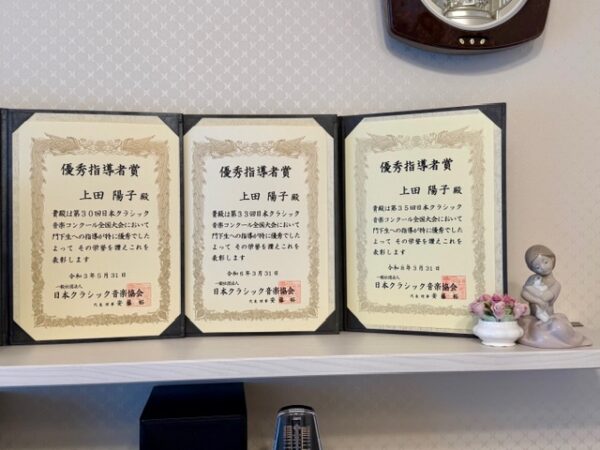 優秀指導者賞
上田 陽子 殿
貴殿は第30回日本クラシック
音楽コンクール全国大会において
門下生への指導が特に優秀でした
よって その栄誉を讃えこれを
表彰します
令和3年5月31日
一般社団法人
日本クラシック音楽協会
代表理事 安藤
優秀指導者賞
上田 陽子 殿
貴殿は第33回日本クラシック
音楽コンクール全国大会において
門下生への指導が特に優秀でした
よって その栄誉を讃えこれを
表彰します
令和6年3月31日
一般社団法人
日本クラシック音楽協会
代表理事 安藤
優秀指導者賞
上田 陽子 殿
貴殿は第35回日本クラシック
音楽コンクール全国大会において
門下生への指導が特に優秀でした
よって その栄誉を讃えこれを
表彰します
令和8年3月31日
一般社団法人
日本クラシック音楽協会
代表理事 安藤